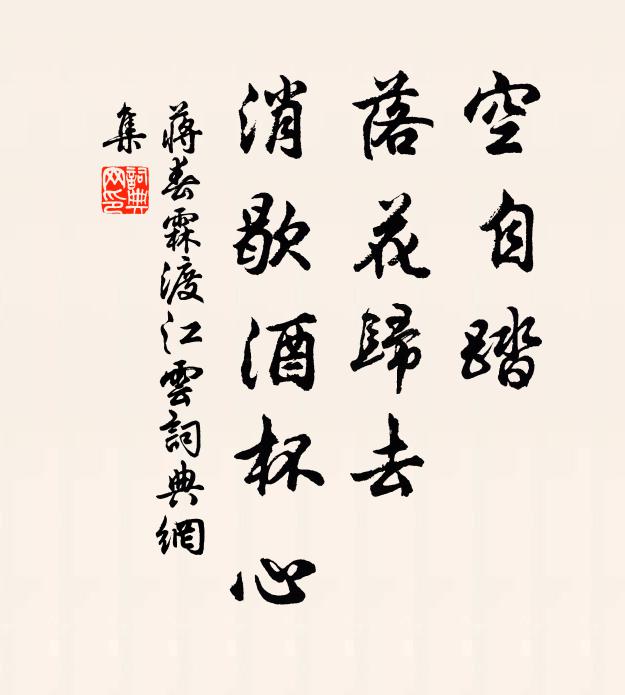 空自踏
落花歸去
消歇酒杯心
蔣春霖渡江雲詞典網
集
詞典
网印